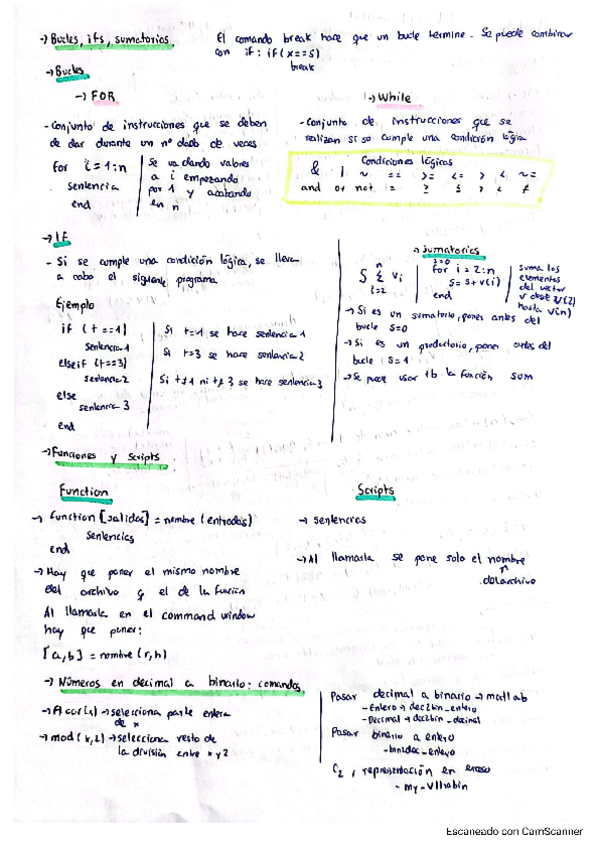 → Bucles, ifs, sumatorios
El comando break hace que un bucle termine. Se puede combinar
con if: if (x==5)
break
→ Bucles
→ FOR
- Conjunto de instrucciones que se deben
de dar durante un nº dado de veces
for i = 1:n
sentencia
end
Se va dando valores
a i empezando
por 1 y acabando
en n
→ While
- Conjunto de instrucciones que se
realizan si se cumple una condición lógica
Condiciones lógicas
& | ~ == >= <= > < ~=
and or not = ≥ ≤ > < ≠
→ If
- Si se cumple una condición lógica, se lleva
a cabo el siguiente programa
Ejemplo
if (t==1)
sentencia 1
elseif (t==3)
sentencia 2
else
sentencia 3
end
Si t=1 se hace sentencia 1
Si t=3 se hace sentencia 2
Si t≠1 ni t≠3 se hace sentencia 3
→ Sumatorios
S Σ vi
n
i=2
s=0
for i = 2:n
s = s + v(i)
end
suma los
elementos
del vector
v desde v(2)
hasta v(n)
→ Si es un sumatorio, poner antes del
bucle s=0
→ Si es un productorio, poner antes del
bucle s=1
→ Se puede usar tb la función sum
→ Funciones y scripts
Function
→ function [salidas] = nombre (entradas)
sentencias
end
→ Hay que poner el mismo nombre
del archivo y el de la función
Al llamarla en el command window
hay que poner:
[a,b] = nombre (r,h)
Scripts
→ sentencias
→ Al llamarla se pone solo el nombre
del archivo
→ Números en decimal a binario: comandos
→ floor(x) → selecciona parte entera
de x
→ mod(x,2) → selecciona resto de
la división entre x y 2
Pasar decimal a binario → matlab
- Entero → dec2bin_entero
- Decimal → dec2bin_decimal
Pasar binario a entero
- bin2dec_entero
C2, representación en exceso
Escaneado con CamScanner